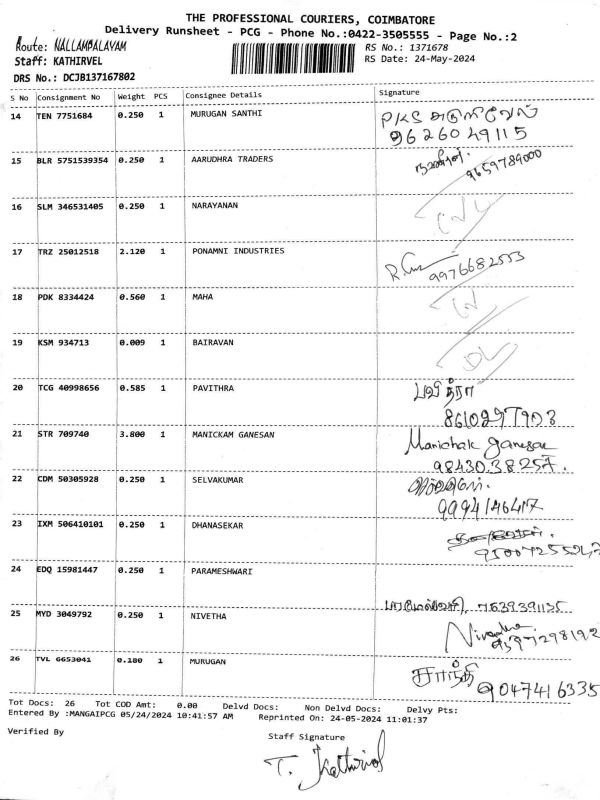 THE PROFESSIONAL COURIERS, COIMBATORE
Delivery Runsheet - PCG - Phone No.:0422-3505555 - Page No.:2
Route: NALLAMPALAYAM
RS No.: 1371678
Staff: KATHIRVEL
RS Date: 24-May-2024
DRS No.: DCJB137167802
S No Consignment No Weight PCS Consignee Details Signature
14 TEN 7751684 0.250 1 MURUGAN SANTHI PKS
9626049115
15 BLR 5751539354 0.250 1 AARUDHRA TRADERS
9659789000
16 SLM 346531405 0.250 1 NARAYANAN
17 TRZ 25012518 2.120 1 PONAMNI INDUSTRIES
9976682553
18 PDK 8334424 0.560 1 MAHA
19 KSM 934713 0.009 1 BAIRAVAN
DL
20 TCG 40998656 0.585 1 PAVITHRA பவித்ரா
8610297903
21 STR 709740 3.800 1 MANICKAM GANESAN Manichak ganesan
9843038257.
22 CDM 50305928 0.250 1 SELVAKUMAR
9994146417
23 IXM 506410101 0.250 1 DHANASEKAR
24 EDQ 15981447 0.250 1 PARAMESHWARI
25 MYD 3049792 0.250 1 NIVETHA பரமேஸ்வரி, 7639391135
Nivedha
9597298192
26 TVL 6653041 0.180 1 MURUGAN சாந்தி
9047416335
Tot Docs: 26 Tot COD Amt: 0.00 Delvd Docs: Non Delvd Docs: Delvy Pts:
Entered By :MANGAIPCG 05/24/2024 10:41:57 AM Reprinted On: 24-05-2024 11:01:37
Verified By
Staff Signature
T. Kathirvel